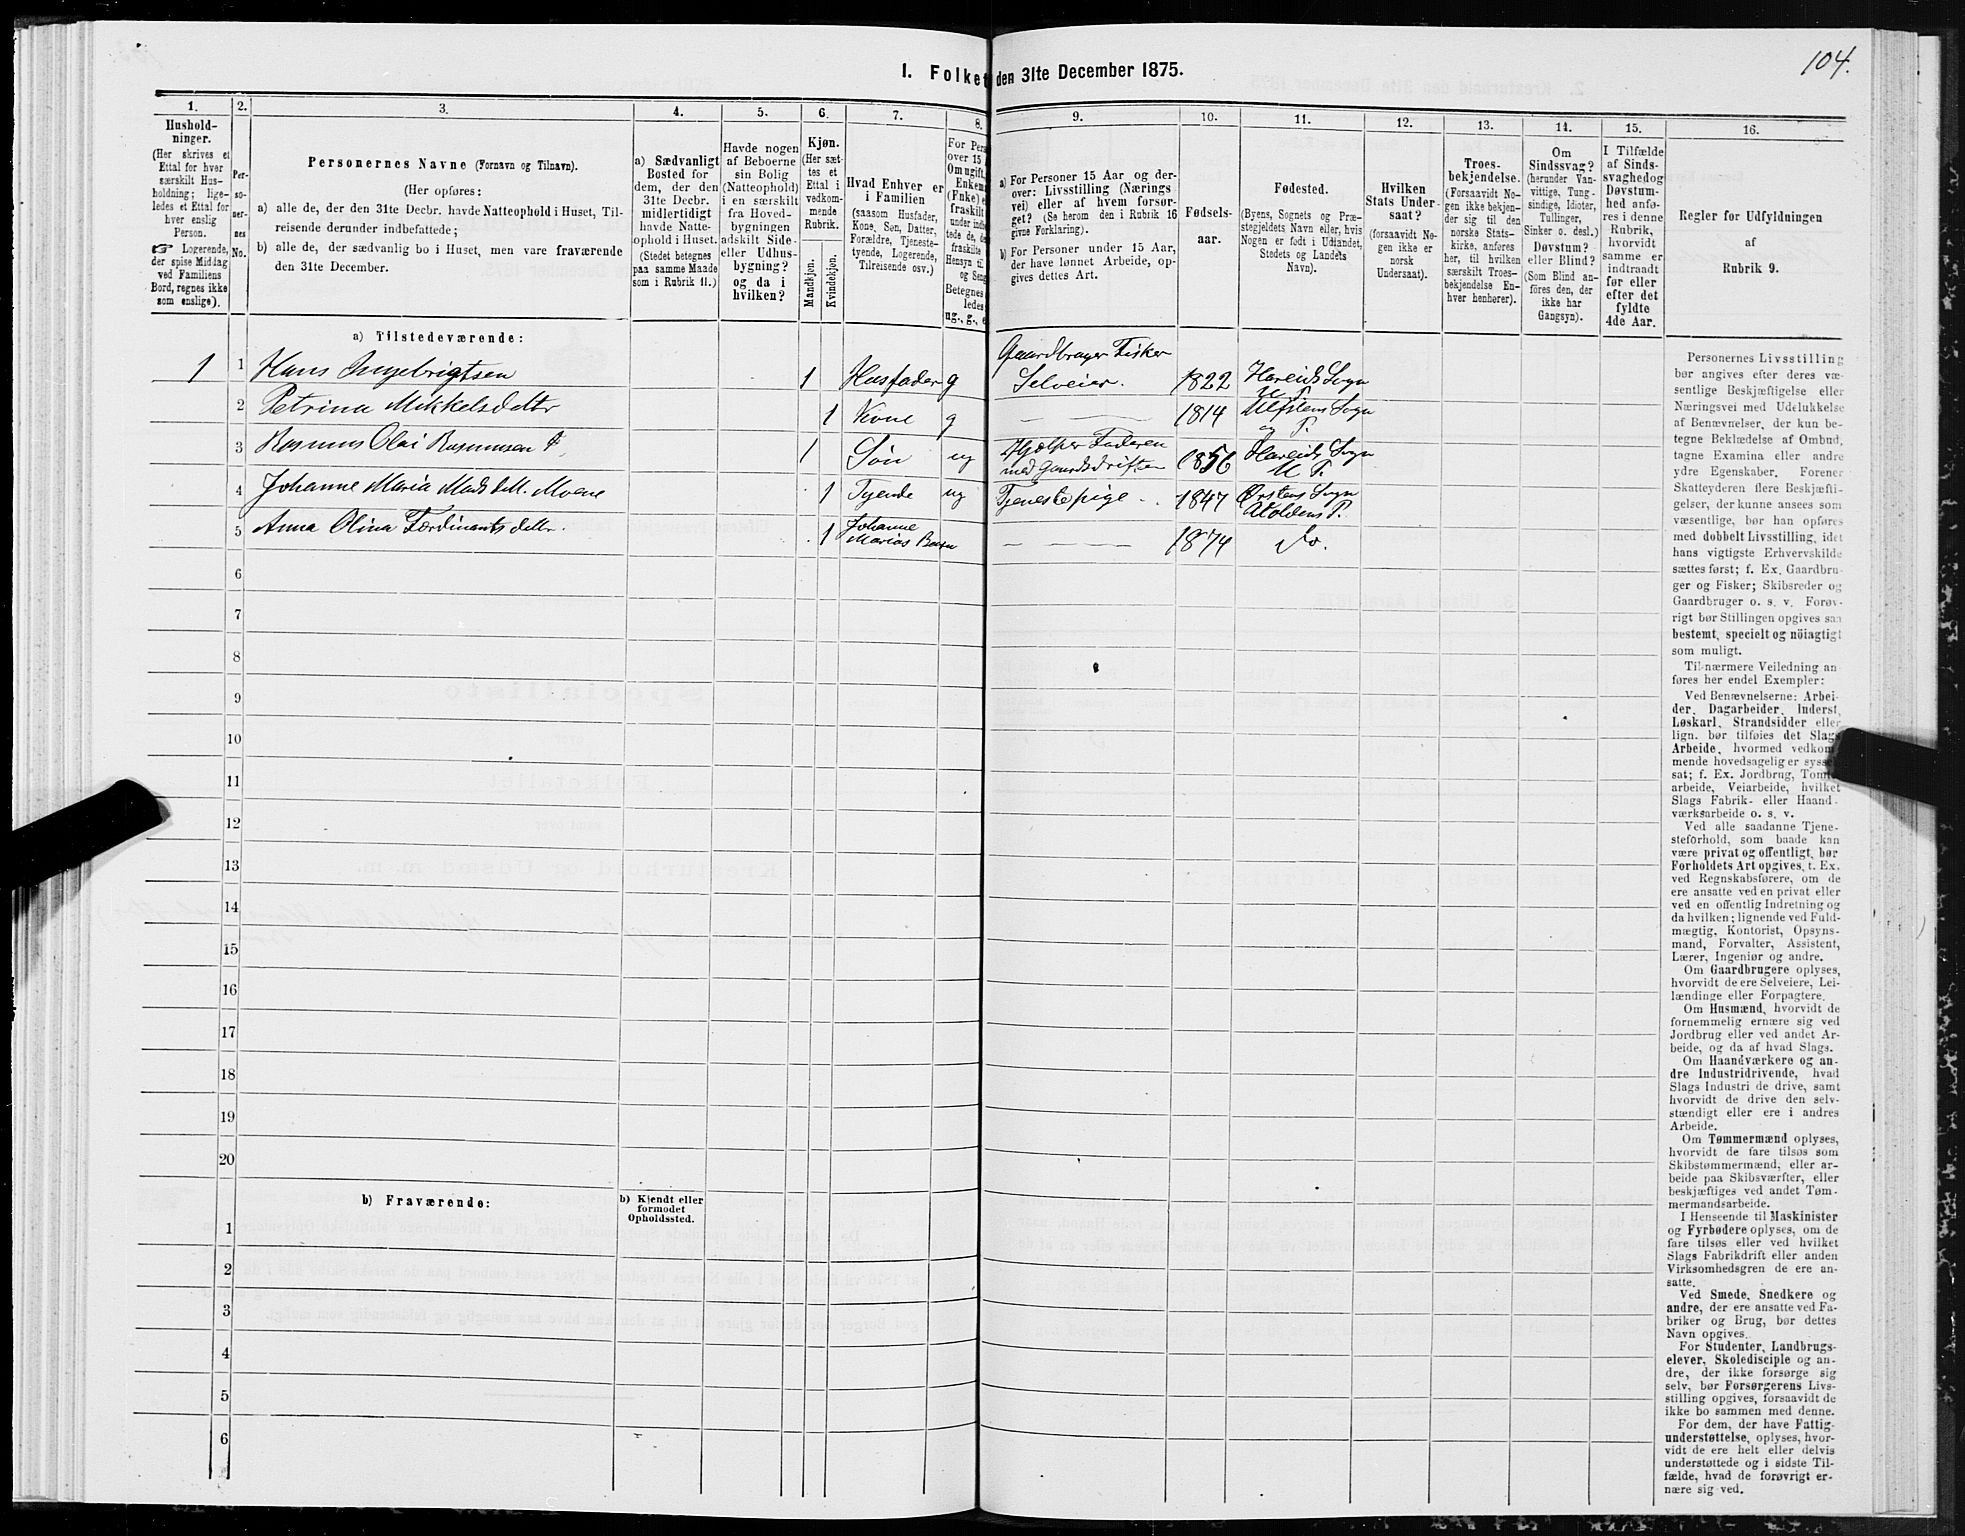 104.
I. Folket den 31te December 1875.
1. 2. 3. 4. 5. 6. 7. 8. 9. 10. 11. 12. 13. 14. 15. 16.
Hushold-
ninger.
(Her skrives et
Ettal for hver
særskilt Hus-
holdning; lige-
ledes et Ettal for
hver enslig
Person.
☞ Logerende,
der spise Middag
ved Familiens
Bord, regnes ikke
som enslige).
Per-
so-
ner-
nes
No.
Personernes Navne (Fornavn og Tilnavn).
(Her opføres:
a) alle de, der den 31te Decbr. havde Natteophold i Huset, Til-
reisende derunder indbefattede;
b) alle de, der sædvanlig bo i Huset, men vare fraværende
den 31te December.
a) Sædvanligt
Bosted for
dem, der den
31te Decbr.
midlertidigt
havde Natte-
ophold i Huset.
(Stedet betegnes
paa samme Maade
som i Rubrik 11.)
Havde nogen
af Beboerne
sin Bolig
(Natteophold)
i en særskilt
fra Hoved-
bygningen
adskilt Side-
eller Udhus-
bygning?
og da i
hvilken?
Kjøn.
(Her sæt-
tes et
Ettal i
vedkom-
mende
Rubrik.
Mandkjøn.
Kvindekjøn.
Hvad Enhver er
i Familien
(saasom Husfader,
Kone, Søn, Datter,
Forældre, Tjeneste-
tyende, Logerende,
Tilreisende osv.)
For Pers
over 15
Om ugift,
Enkem
(Enke) e
fraskilt
under indb
tede de, d
fraskilte
Hensyn til
og Seng
Betegnes
ledes
ug., g., e
a) For Personer 15 Aar og der-
over: Livsstilling (Nærings
vei) eller af hvem forsør-
get? (Se herom den i Rubrik 16
givne Forklaring).
b) For Personer under 15 Aar,
der have lønnet Arbeide, op-
gives dettes Art.
Fødsels-
aar.
Fødested.
(Byens, Sognets og Præ-
stegjeldets Navn eller, hvis
Nogen er født i Udlandet,
Stedets og Landets
Navn).
Hvilken
Stats Under-
saat?
(forsaavidt No-
gen ikke er
norsk
Undersaat).
Troes-
bekjendelse.
(Forsaavidt No-
gen ikke bekjen-
der sig til den
norske Stats-
kirke, anføres
her, til hvilken
særskilt Troes-
bekjendelse En-
hver henhører).
Om
Sindssvag?
(herunder Van-
vittige, Tung-
sindige, Idioter,
Tullinger,
Sinker o. desl.)
Døvstum?
eller Blind?
(Som Blind an-
føres den, der
ikke har
Gangsyn).
I Tilfælde
af Sinds-
svaghed og
Døvstum-
hed anfø-
res i denne
Rubrik,
hvorvidt
samme er
indtraadt
før eller
efter det
fyldte
4de Aar.
Regler for Udfyldningen
af
Rubrik 9.
a) Tilstedeværende:
Gaardbruger Fisker
1 1 Hans Ingebrigtsen 1 Husfader g Selveier. 1822 Hareids Sogn
U. P.
2 Petrina Mikkelsdatter 1 Kone g — 1814 Ulfstens Sogn
og P.
3 Rasmus Olai Rasmussen 1 Søn ug Hjælper Faderen
med Gaardsdriften 1856 Hareids Sogn
U. P.
4 Johanne Maria Madsd. Moene 1 Tyende ug Tjenestepige. 1847 Ørstens Sogn
Voldens P.
5 Anna Olina Ferdinantsdatter. 1 Johanne
Marias Barn — 1874 do.
6
7
8
9
10
11
12
13
14
15
16
17
18
19
20
b) Fraværende:
b) Kjendt eller
formodet
Opholdssted.
1
2
3
4
5
6
Personernes Livsstilling
bør angives efter deres væ-
sentlige Beskjæftigelse eller
Næringsvei med Udelukkelse
af Benævnelser, der kun be-
tegne Beklædelse af Ombud,
tagne Examina eller andre
ydre Egenskaber. Forener
Skatteyderen flere Beskjæfti-
gelser, der kunne ansees som
væsentlige, bør han opføres
med dobbelt Livsstilling, idet
hans vigtigste Erhvervskilde
sættes først; f. Ex. Gaardbru-
ger og Fisker; Skibsreder og
Gaardbruger o. s. v. Forøv-
rigt bør Stillingen opgives saa
bestemt, specielt og nöiagtigt
som muligt.
Til nærmere Veiledning an-
føres her endel Exempler:
Ved Benævnelserne: Arbei-
der, Dagarbeider, Inderst,
Løskarl, Strandsidder eller
lign. bør tilføies det Slags
Arbeide, hvormed vedkom-
mende hovedsagelig er syssel
sat; f. Ex. Jordbrug, Tomte-
arbeide, Veiarbeide, hvilket
Slags Fabrik- eller Haand-
værksarbeide o. s. v.
Ved alle saadanne Tjene-
steforhold, som baade kan
være privat og offentligt, bør
Forholdets Art opgives, t. Ex.
ved Regnskabsførere, om de
ere ansatte ved en privat eller
ved en offentlig Indretning og
da hvilken; lignende ved Fuld-
mægtig, Kontorist, Opsyns-
mand, Forvalter, Assistent,
Lærer, Ingeniør og andre.
Om Gaardbrugere oplyses,
hvorvidt de ere Selveiere, Lei-
lændinge eller Forpagtere.
Om Husmænd, hvorvidt de
fornemmelig ernære sig ved
Jordbrug eller ved andet Ar-
beide, og da af hvad Slags.
Om Haandværkere og an-
dre Industridrivende, hvad
Slags Industri de drive, samt
hvorvidt de drive den selv-
stændigt eller ere i andres
Arbeide.
Om Tømmermænd oplyses,
hvorvidt de fare tilsøs som
Skibstømmermænd, eller ar-
beide paa Skibsværfter, eller
beskjæftiges ved andet Tøm-
mermandsarbeide.
I Henseende til Maskinister
og Fyrbødere oplyses, om de
fare tilsøs eller ved hvilket
Slags Fabrikdrift eller anden
Virksomhedsgren de ere an-
satte.
Ved Smede, Snedkere og
andre, der ere ansatte ved Fa-
briker og Brug, bør dettes
Navn opgives.
For Studenter, Landbrugs-
elever, Skoledisciple og an-
dre, der ikke forsørge sig
selv, bør Forsørgerens Livs-
stilling opgives, forsaavidt de
ikke bo sammen med denne.
For dem, der have Fattig-
understøttelse, oplyses, hvor-
vidt de ere helt eller delvis
understøttede og i sidste Til-
fælde, hvad de forøvrigt er-
nære sig ved.